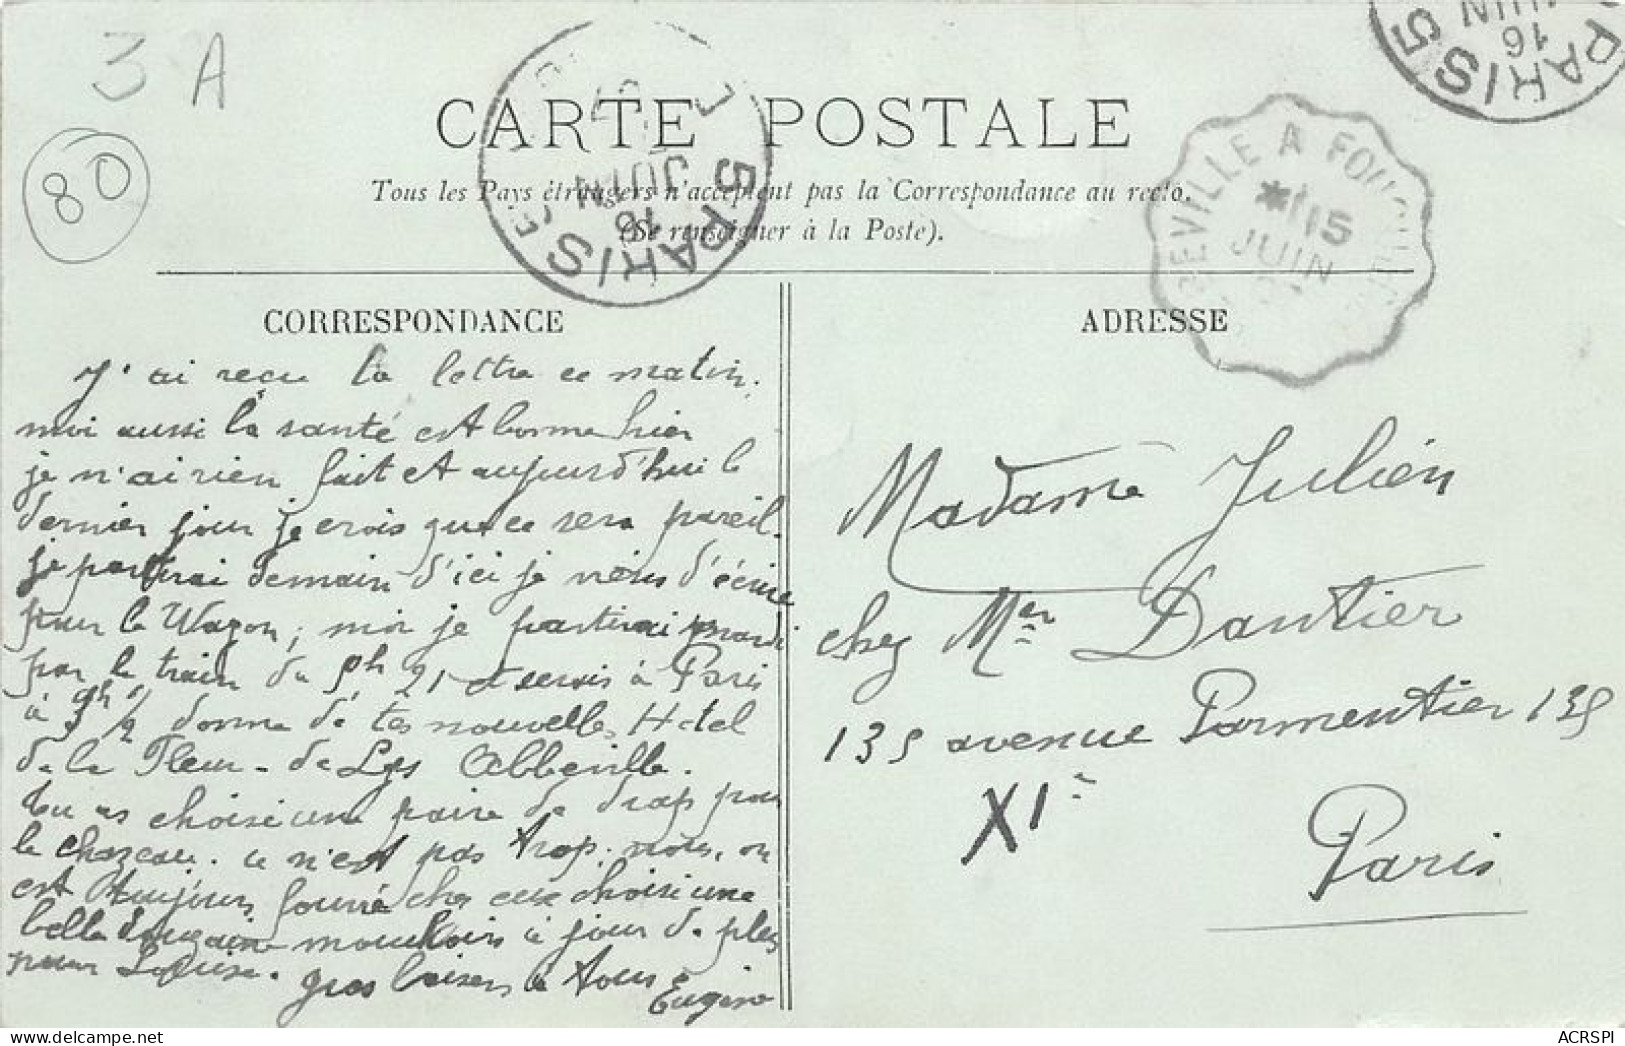 3 A
80
CARTE POSTALE
Tous les Pays étrangers n'acceptent pas la Correspondance au recto.
(Se renseigner à la Poste).
PARIS 5
16
JUIN
PARIS 5
16
JUIN
15
JUIN
CORRESPONDANCE
J'ai recu ta lettre ce matin.
moi aussi la santé est bonne hier
je n'ai rien fait et aujourd'hui le
dernier jour je crois que ce sera pareil.
je partirai demain d'ici je viens d'écrire
pour le Wagon; moi je partirai mardi
par le train de 5h 21 et serais à Paris
à 9h 1/2 donne de tes nouvelles Hotel
de la Fleur-de Lys Abbeville.
tu as choisi une paire de drap pour
le chazeau. ce n'est pas trop. nous, on
est toujours fourré chez eux choisi une
belle douzaine mouchoirs à jour de plus
pour Louise. gros baisers à tous
Eugène
ADRESSE
Madame Julien
chez Mer Dautier
135 avenue Parmentier 135
XIe
Paris
ACRSPI